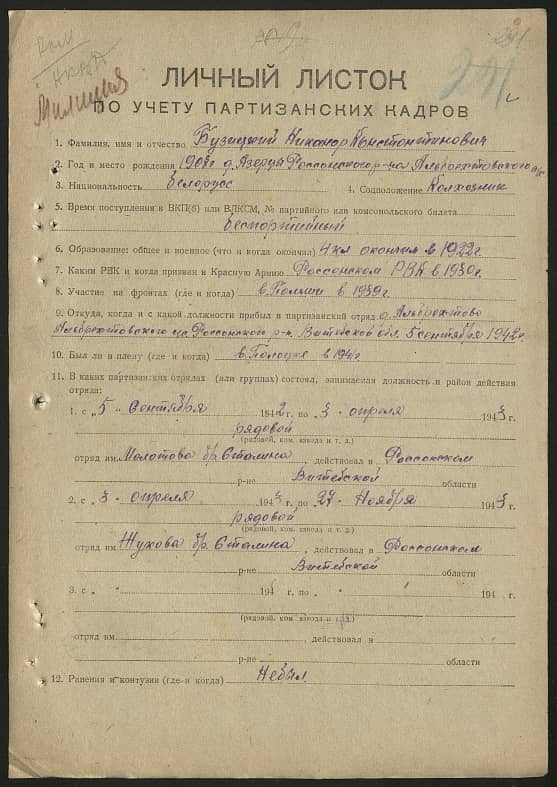 НККА
Милиция
ЛИЧНЫЙ ЛИСТОК
ПО УЧЕТУ ПАРТИЗАНСКИХ КАДРОВ
1. Фамилия, имя и отчество Бузицкий Никанор Константинович
2. Год и место рождения 1907г. д. Язерцы Россонского р-на Альбрехтовского с/с
3. Национальность белорус 4. Соцположение Колхозник
5. Время поступления в ВКП(б) или ВЛКСМ, № партийного или комсомольского билета
беспартийный
6. Образование: общее и военное (что и когда окончил) 4 кл окончил в 1922г.
7. Каким РВК и когда призван в Красную Армию Россонском РВК в 1939г.
8. Участие на фронтах (где и когда) в Польши в 1939г.
9. Откуда, когда и с какой должности прибыл в партизанский отряд д. Альбрехтово
Альбрехтовского с/с Россонского р-н. Витебской обл. 5 сентября 1942г
10. Был ли в плену (где и когда) в Полоцке в 1941г
11. В каких партизанских отрядах (или группах) состоял, занимаемая должность и район действия
отряда:
1. с „5 Сентября 1942 г. по 3 - апреля 1943 г.
рядовой
(рядовой, ком. взвода и т. д.)
отряд им. Молотова бр. Сталина, действовал в Россонском
р-не Витебской области
2. с 3 - апреля 1943 г. по 27 - Ноября 1943 г.
рядовой
(рядовой, ком. взвода и т. д.)
отряд им Жукова бр. Сталина, действовал в Россонском
р-не Витебской области
3. с „ 194 г. по „ 194 г.
(рядовой, ком. взвода и т. д.)
отряд им. действовал в
р-не области
12. Ранения и контузии (где и когда) Небыл